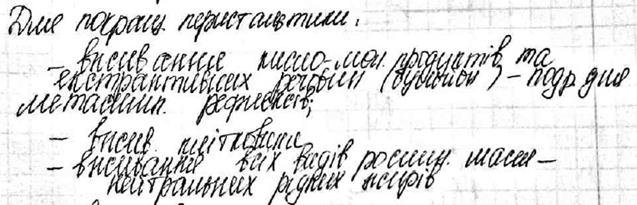 Для покращ. перистальтики:
- вживання кисло-мол. продуктів та
екстрактивних речовин (бульйон) - подр. для
рефлексів;
- вжив. клітковини
- вживання всіх видів рослин. масел -
нейтральних рідких жирів